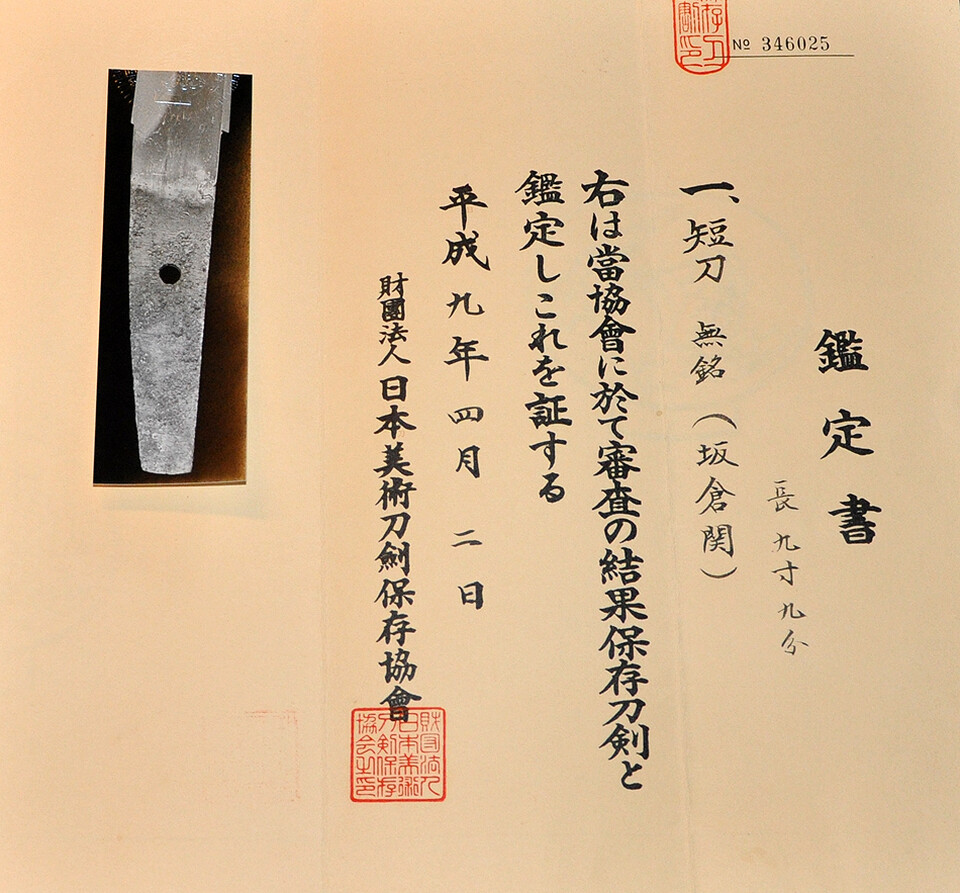 № 346025
鑑定書
長九寸九分
一、短刀 無銘（坂倉関）
右は當協會に於て審査の結果保存刀剣と
鑑定しこれを証する
平成九年四月二日
財團法人日本美術刀劍保存協會
財団法人
日本美術
刀剣保存
協会之印